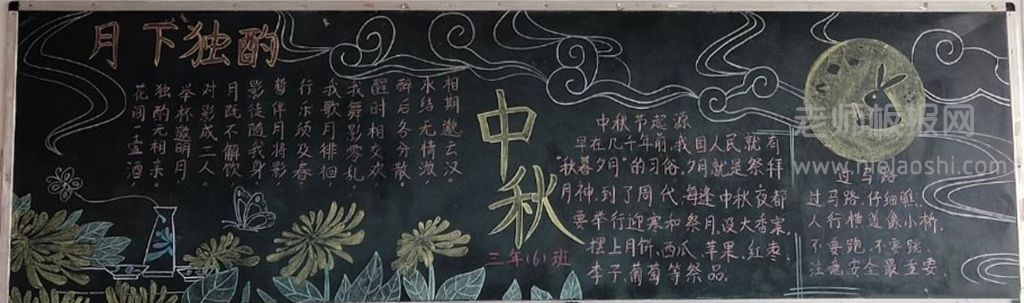 月下独酌
花间一壶酒,
独酌无相亲。
举杯邀明月,
对影成三人。
月既不解饮,
影徒随我身。
暂伴月将影,
行乐须及春。
我歌月徘徊,
我舞影零乱。
醒时相交欢,
醉后各分散。
永结无情游,
相期邈云汉。
中秋
三年(6)班
中秋节起源
早在几千年前,我国人民就有
“秋暮夕月”的习俗.夕月就是祭拜
月神.到了周代,每逢中秋夜都
要举行迎寒和祭月。设大香案,
摆上月饼、西瓜、苹果、红枣、
李子葡萄等祭品。
过马路
过马路,仔细瞧,
人行横道像小桥。
不要跑,不要跳,
注意安全最重要
老师板报网
www.nielaoshi.com